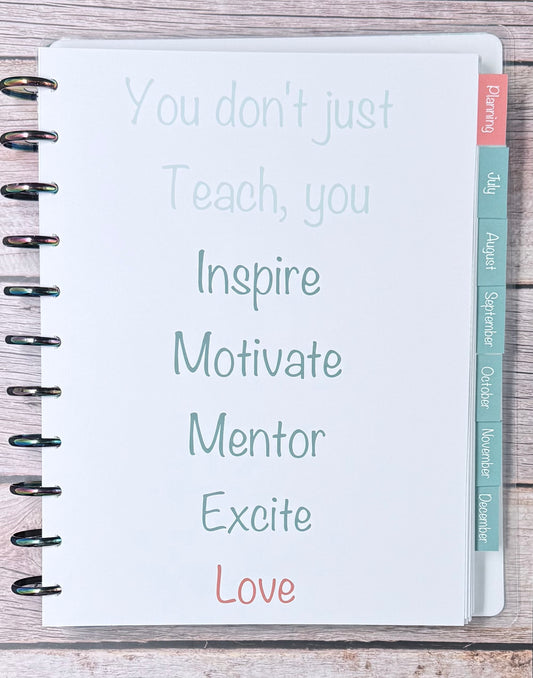 You don't just
Teach, you
Inspire
Motivate
Mentor
Excite
Love
Planning
July
August
September
October
November
December